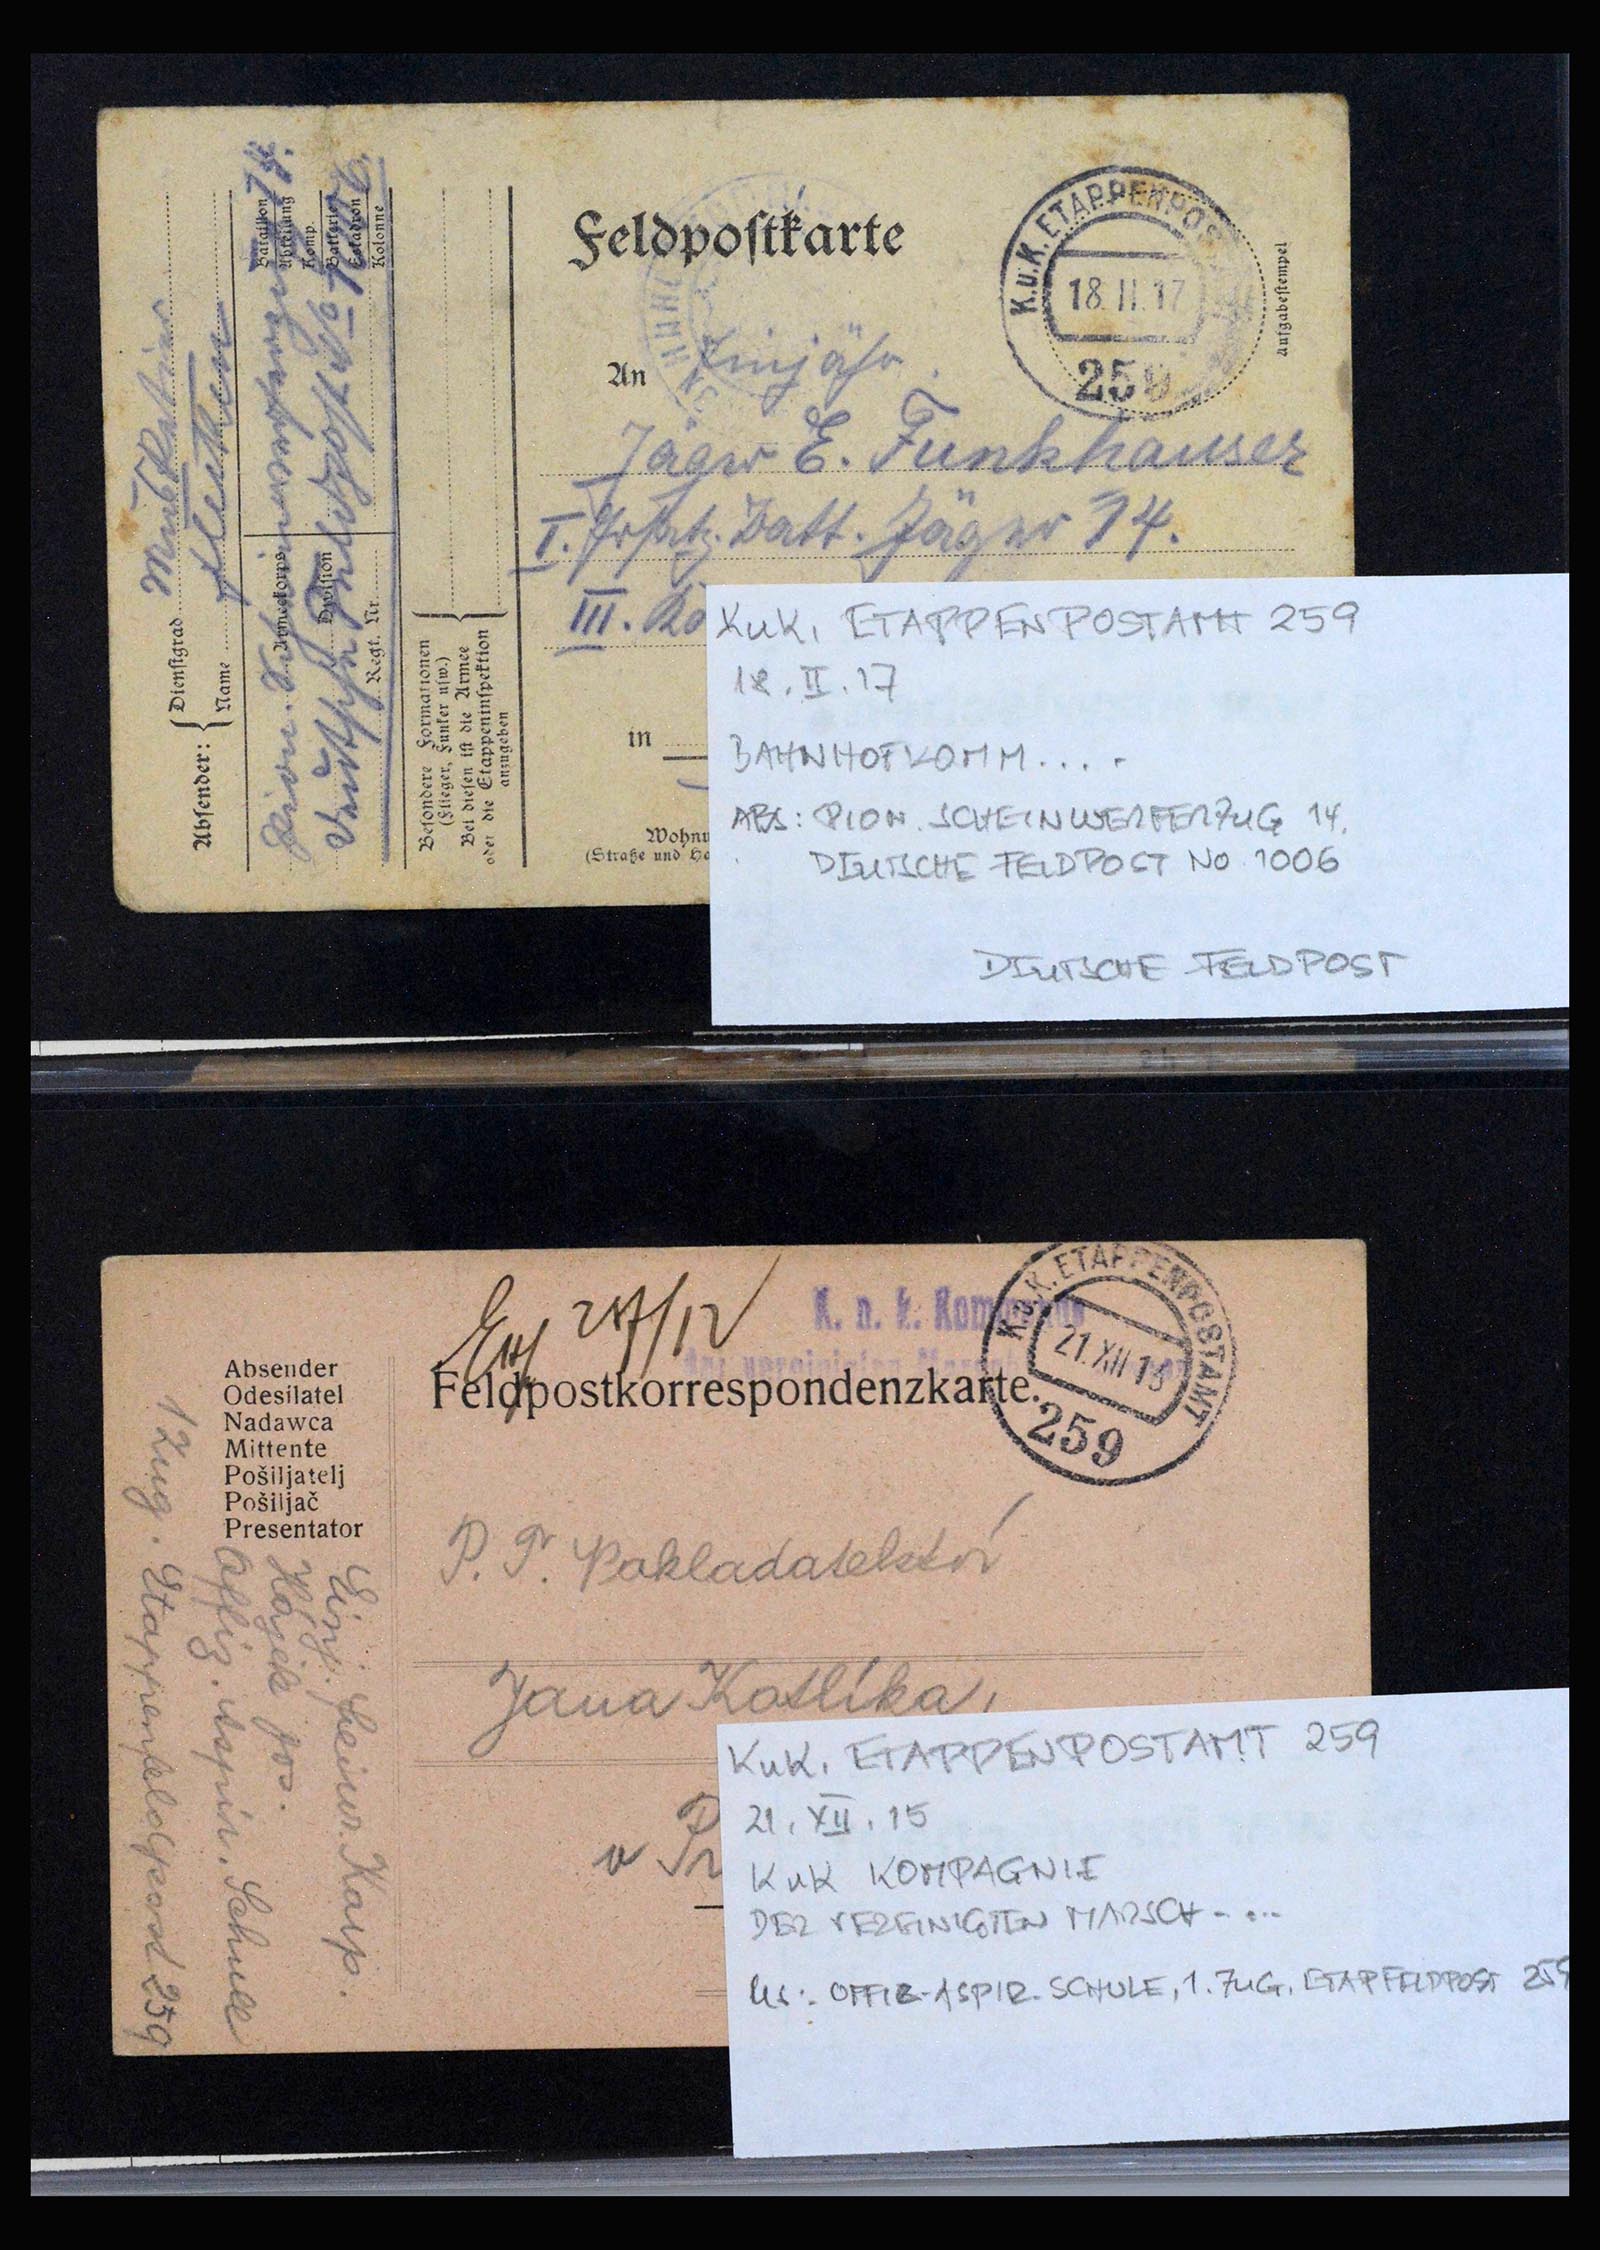 Feldpostkarte
K.u.K. ETAPPENPOST
18.II.17
259
Aufgabestempel
An
Jäger E. Funkhauser
I. Ersatz. Batt. Jäger 14.
III.
in
Wohnu
(Straße und Ha
Absender:
Dienstgrad
Name
Armeekorps
Division
Regt. Nr.
Bataillon
Abteilung
Komp.
Batterie
Eskadron
Kolonne
Besondere Formationen
(Flieger, Funker usw.)
Bei diesen ist die Armee
oder die Etappeninspektion
anzugeben
KuK. ETAPPENPOSTAMT 259
18.II.17
BAHNHOFKOMM....
ABS: PION. SCHEINWERFERZUG 14.
DEUTSCHE FELDPOST No 1006
DEUTSCHE FELDPOST
K. u. k. Kompagnie
K.u.K. ETAPPENPOSTAMT
21.XII 15
259
Feldpostkorrespondenzkarte.
Absender
Odesilatel
Nadawca
Mittente
Pošiljatelj
Pošiljač
Presentator
Einj. Feldw. Karp.
Hájek Jos.
Offiz. Aspir. Schule
1 Zug. Etappenfeldpost 259
P. T. Nakladatelství
Jana Kotlíka,
v Pr
KuK. ETAPPENPOSTAMT 259
21.XII.15
KuK KOMPAGNIE
DER VEREINIGTEN MARSCH-...
Abs: OFFIZ-ASPIR. SCHULE, 1. ZUG, ETAPFELDPOST 259